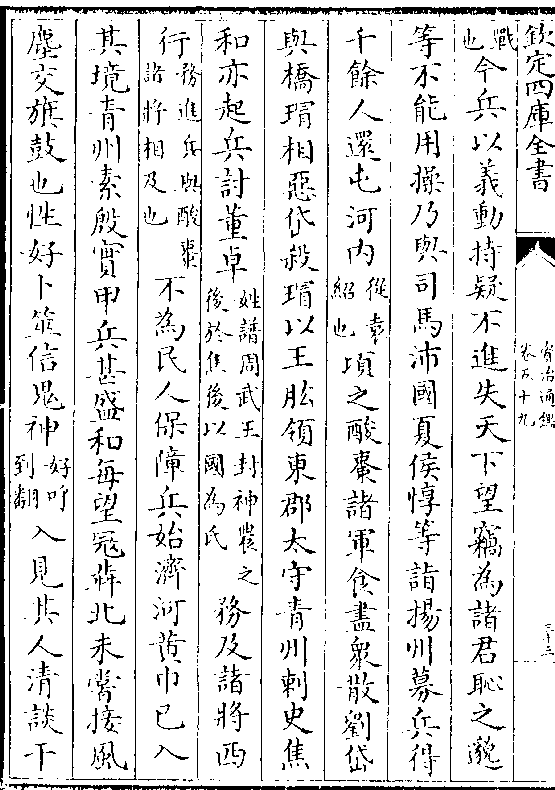 欽定四庫全書
資治通鑑
卷五十九
三十三
戰也今兵以義動持疑不進失天下望竊為諸君恥之邈
等不能用操乃與司馬沛國夏侯惇等詣揚州募兵得
千餘人還屯河内從袁紹也頃之酸棗諸軍食盡衆散劉岱
與橋瑁相惡岱殺瑁以王肱領東郡太守青州刺史焦
和亦起兵討董卓姓譜周武王封神農之後於焦後以國為氏務及諸將西
行務進兵與酸棗諸將相及也不為民人保障兵始濟河黄巾已入
其境青州素殷實甲兵甚盛和每望寇犇北未嘗接風
塵交旗鼓也性好卜筮信鬼神好呼到翻入見其人清談干